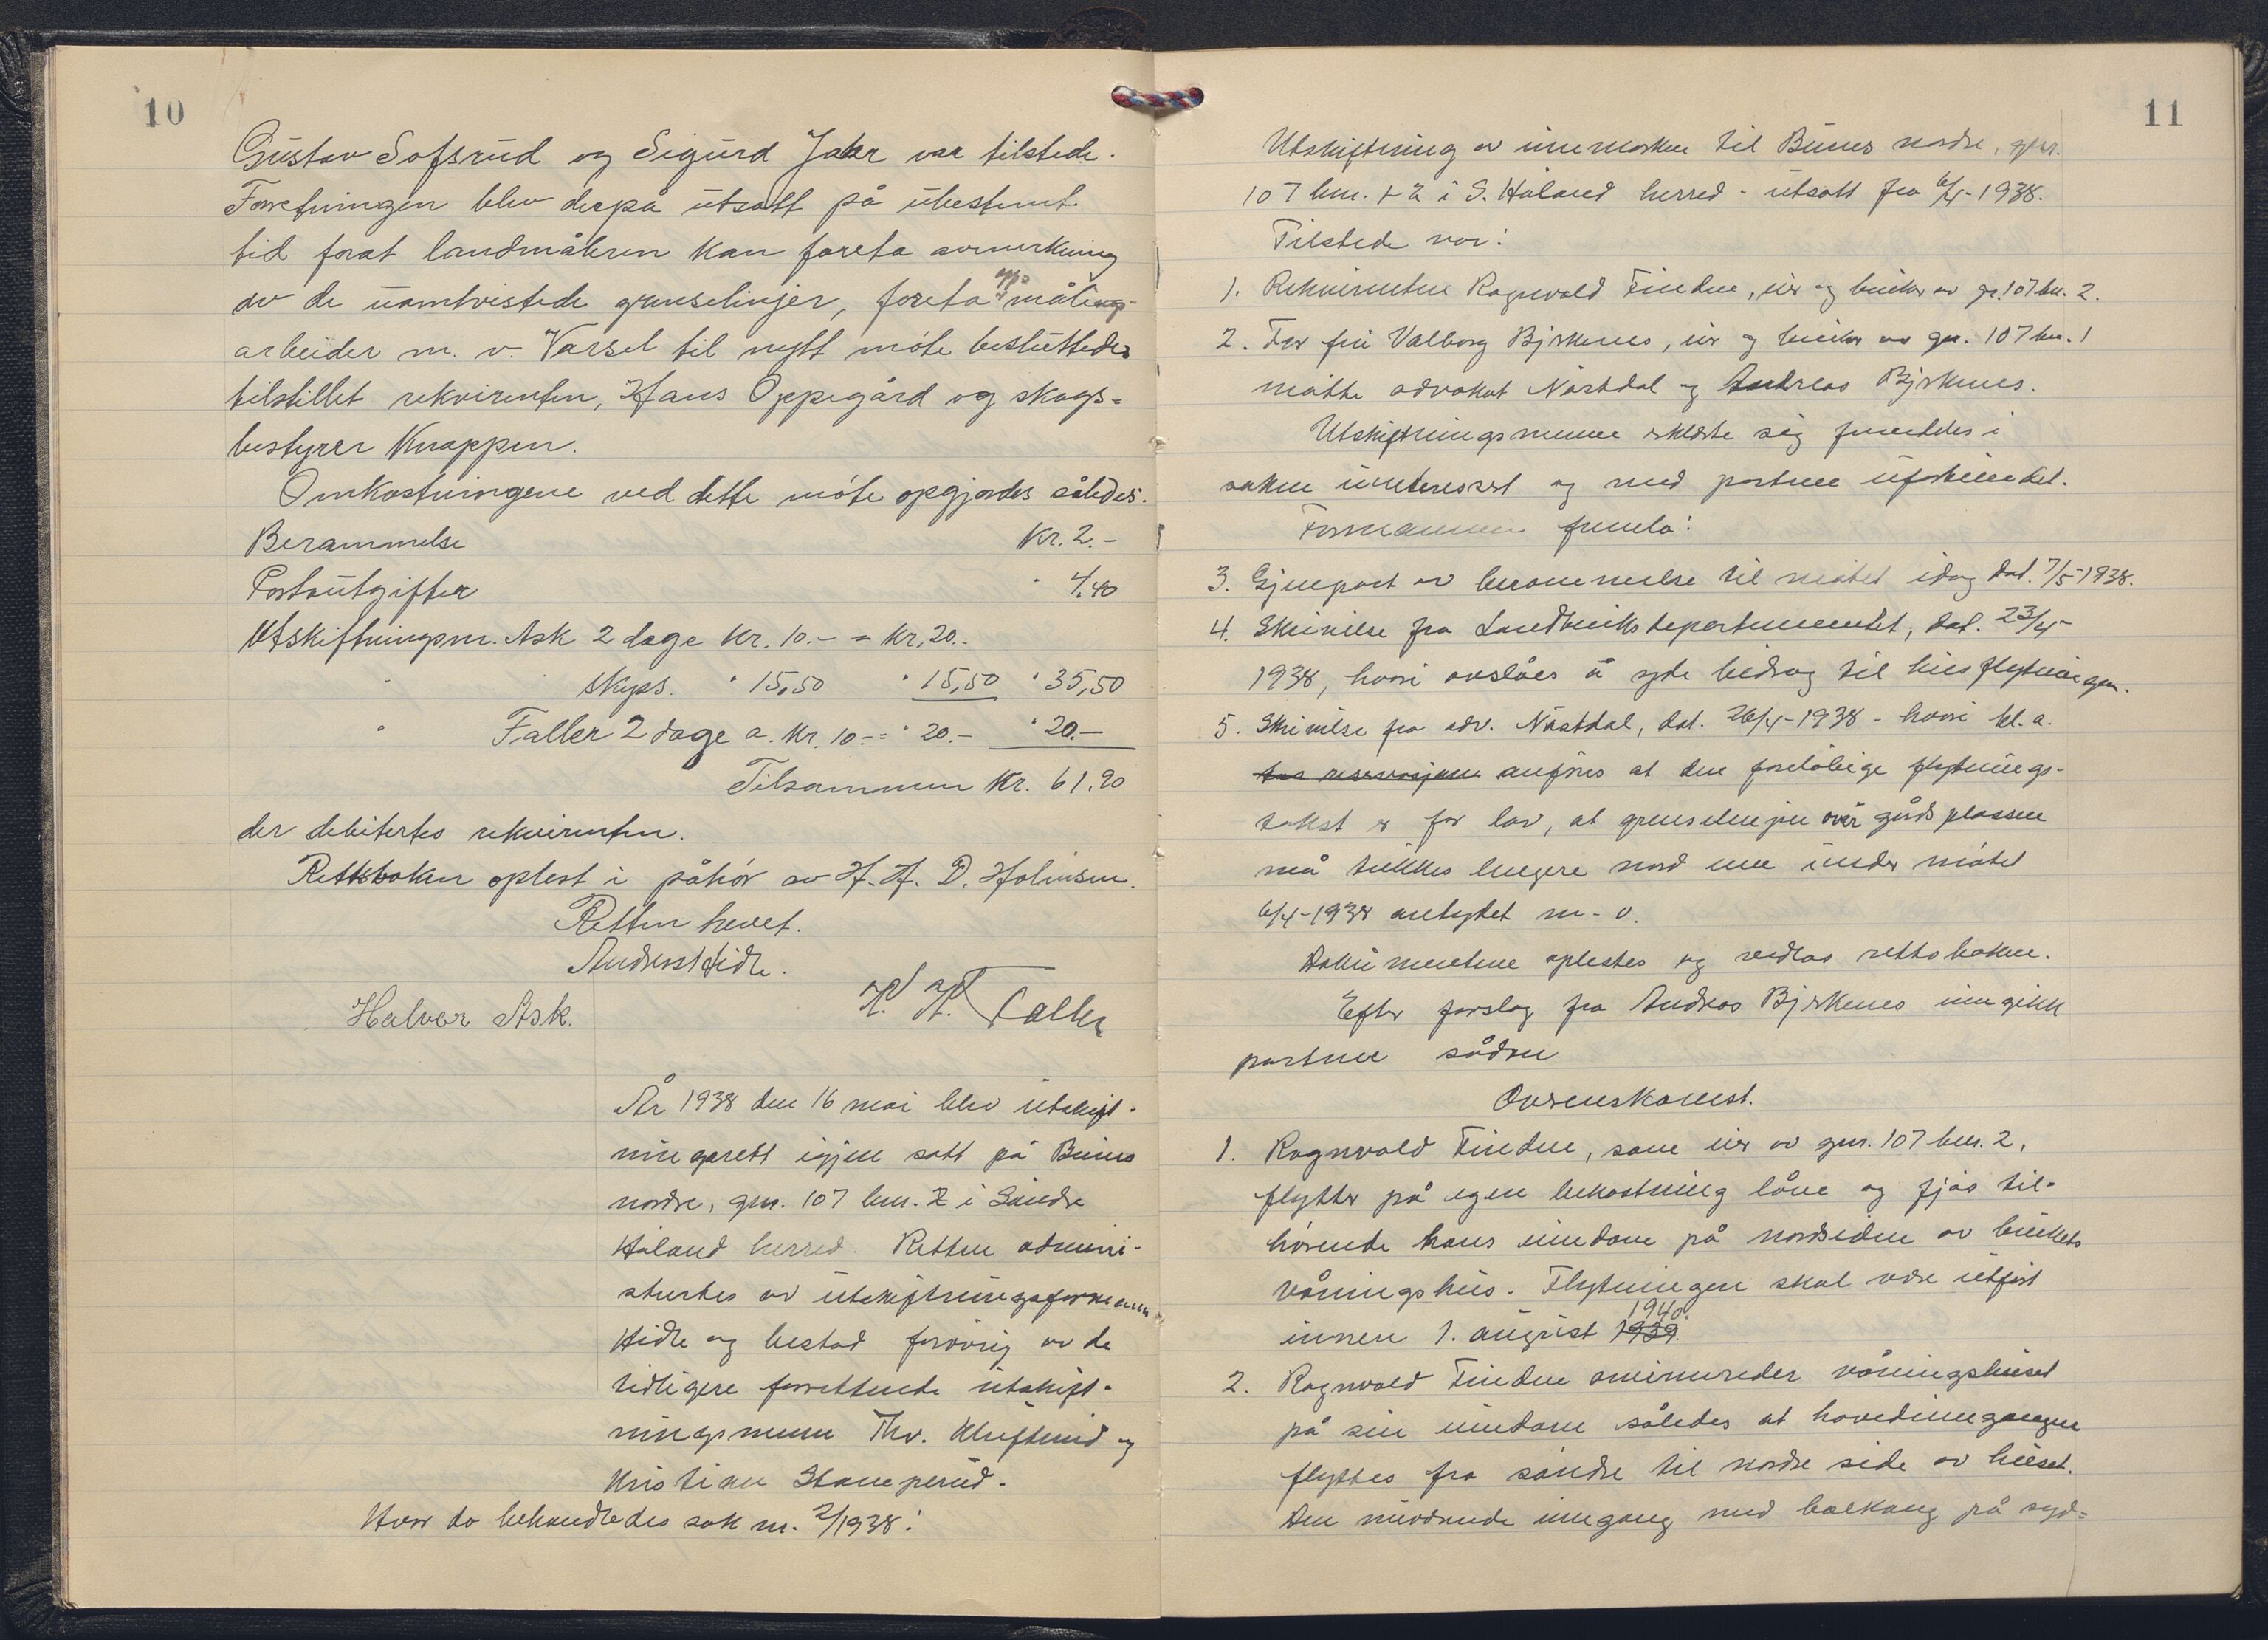 10
Gustav Sofsrud og Sigurd Jahr var tilstede.
Forretningen blev derpå utsatt på ubestemt
tid forat landmåleren kan foreta avmerkning
av de uomtvistede grenselinjer, foreta opmålings-
arbeider m. v. Varsel til nytt møte besluttedes
tilstillet rekvirenten, Hans Oppegård og skogs=
bestyrer Knappen.
Omkostningene ved dette møte opgjordes således:
Berammelse Kr. 2.-
Portoutgifter " 4,40
Utskiftningsm. Ask 2 dage Kr. 10.- = Kr. 20.-
" " skyss. " 15,50 " 15,50 " 35,50
" Faller 2 dage a. Kr. 10.- = " 20.- " 20.-
Tilsammen Kr. 61.90
der debitertes rekvirenten.
Rettsboken oplest i påhør av H. H. D.
Retten hevet.
Anders Hidle.
Halvor Ask. H. H. Faller
År 1938 den 16 mai blev utskift-
ningsrett igjen satt på Bunes
nordre, gnr. 107 bnr. 2 i Søndre
Høland herred. Retten admini-
strertes av utskiftningsformann
Hidle og bestod forøvrig av de
tidligere forrettende utskift-
ningsmenn Thv. Kluftenid og
Kristian Stamperud.
Hvor da behandledes sak nr. 2/1938:
11
Utskiftning av innmarken til Bunes nordre, gnr.
107 bnr. 1 + 2 i S. Høland herred - utsatt fra 6/4-1938.
Tilstede var:
1. Rekvirenten Ragnvald Finden, eier og bruker av gr. 107 bn. 2.
2. For fru Valborg Bjerknes, eier og bruker av gnr. 107 bn. 1
møtte advokat Nästdal og Andreas Bjerknes.
Utskiftningsmenne erklærte sig fremdeles i
saken uinteressert og med partene ubeslektet.
Formannen fremla:
3. Gjenpart av berammelse til møtet idag dat. 7/5-1938.
4. Skrivelse fra Landbruksdepartementet, dat. 23/4-
1938, hvori avslåes å yde bidrag til husflytningen.
5. Skrivelse fra adv. Nästdal, dat. 26/4-1938 - hvori bl. a.
tas reservasjon anføres at den foreløbige flytnings-
takst er for lav, at grenselinjen over gårdsplassen
må trekkes lengere nord enn under møtet
6/4-1938 antydet m. v.
Dokumentene oplestes og vedlas rettsboken.
Efter forslag fra Andreas Bjerknes inngikk
partene sådan
Overenskomst.
1. Ragnvald Finden, som eier av gnr. 107 bnr. 2,
flytter på egen bekostning låve og fjøs til-
hørende hans eiendom på nordsiden av brukets
våningshus. Flytningen skal være utført
innen 1. august 1939. 1940.
2. Ragnvald Finden ominnreder våningshuset
på sin eiendom således at hovedinngangen
flyttes fra søndre til nordre side av huset.
Den nuværende inngang med balkong på syd=